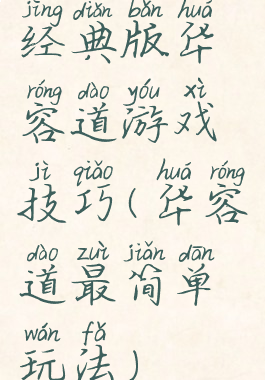 jīng diǎn bǎn huá
经典版华
róng dào yóu xì
容道游戏
jì qiǎo huá róng
技巧(华容
dào zuì jiǎn dān
道最简单
wán fǎ
玩法)